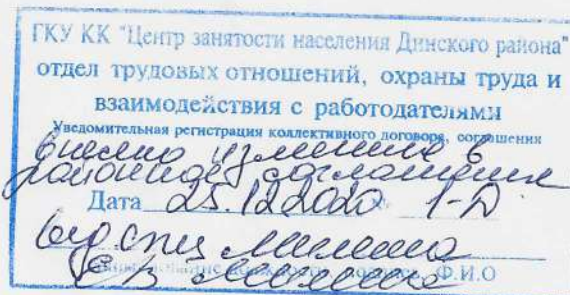 ГКУ КК "Центр занятости населения Динского района"
отдел трудовых отношений, охраны труда и
взаимодействия с работодателями
Уведомительная регистрация коллективного договора, соглашения
внесено изменение в
районное соглашение
Дата 25.12.2020 № 1-Д
вед спец
должности, подпись, Ф.И.О